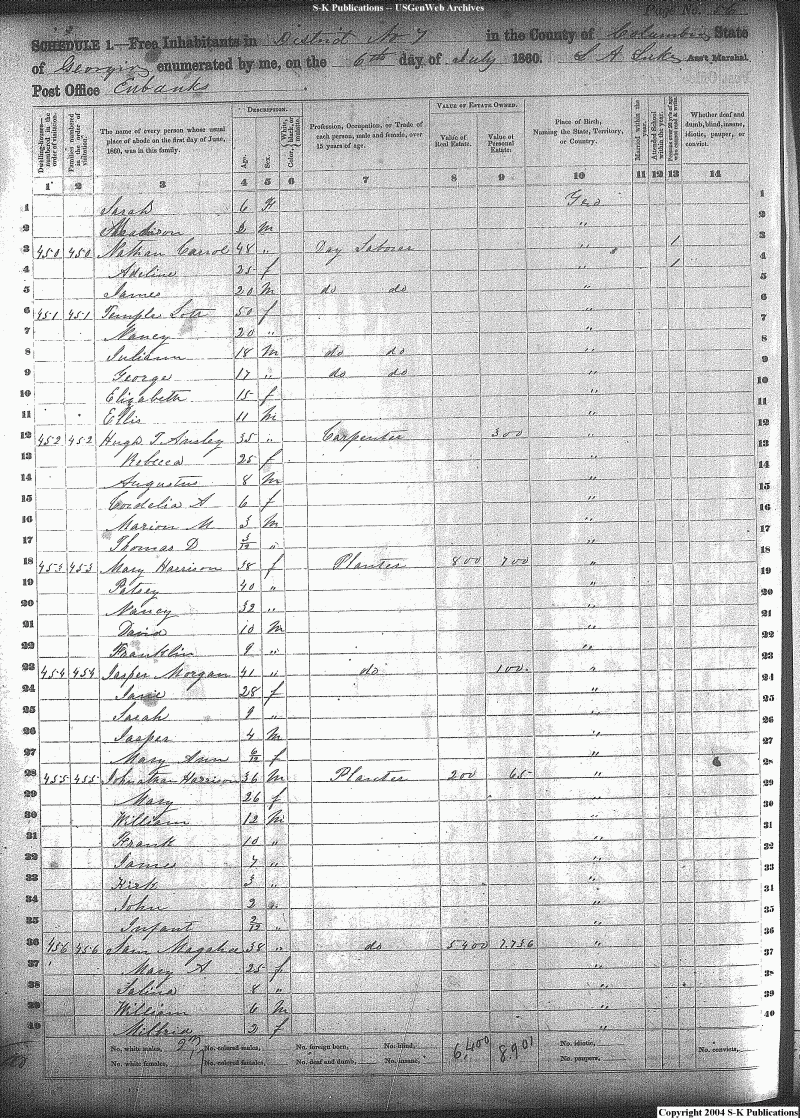 S-K Publications -- USGenWeb Archives
Page No.
SCHEDULE 1.—Free Inhabitants in District No 7 in the County of Columbia State
of Georgia enumerated by me, on the 6th day of July 1860. Ass't Marshal
Post Office Eubanks
Dwelling-houses—numbered in the order of visitation.
Families numbered in the order of visitation.
The name of every person whose usual place of abode on the first day of June, 1860, was in this family.
DESCRIPTION.
Age.
Sex.
Color, White, black, or mulatto.
Profession, Occupation, or Trade of each person, male and female, over 15 years of age.
VALUE OF ESTATE OWNED.
Value of Real Estate.
Value of Personal Estate.
Place of Birth, Naming the State, Territory, or Country.
Married within the year.
Attended School within the year.
Whether deaf and dumb, blind, insane, idiotic, pauper, or convict.
1 2 3 4 5 6 7 8 9 10 11 12 13 14
1 Sarah 6 Geo 1
2 2 m " 2
3 450 450 Nathan Carrol 48 " Day Laborer " 1 3
4 Adeline 25 f " 1 4
5 James 20 m do do " 5
6 451 451 Temple Lott 50 f " 6
7 Nancy 20 " " 7
8 Juliann 18 m do do " 8
9 George 17 " do do " 9
10 Elizabeth 15 f " 10
11 Ellis 11 m " 11
12 452 452 Hugh T. Ansley 35 " Carpenter 300 " 12
13 Rebecca 25 f " 13
14 Augustus 8 m " 14
15 Cordelia A 6 f " 15
16 Marion M 3 m " 16
17 Thomas D 3/12 " " 17
18 453 453 Mary Harrison 38 f Planter 800 700 " 18
19 Patsey 40 " " 19
20 Nancy 32 " " 20
21 David 10 m " 21
22 Franklin 9 " " 22
23 454 454 Jasper Morgan 41 " do 100 " 23
24 Jane 28 f " 24
25 Sarah 9 " " 25
26 Jasper 4 m " 26
27 Mary Ann 6/12 f " 27
28 455 455 Johnathan Harrison 36 m Planter 200 65 " 28
29 Mary 26 f " 29
30 William 12 m " 30
31 Frank 10 " " 31
32 James 7 " " 32
33 Kirk 3 " " 33
34 John 2 " " 34
35 Infant 2/12 " " 35
36 456 456 Sam Magahee 38 " do 5400 7.736 " 36
37 Mary A 25 f " 37
38 8 " " 38
39 William 6 m " 39
40 2 f " 40
No. white males, No. colored males, No. foreign born, No. blind, 6,400 8.901 No. idiotic, No. convicts,
No. white females, No. colored females, No. deaf and dumb, No. insane, No. paupers,
Copyright 2004 S-K Publications